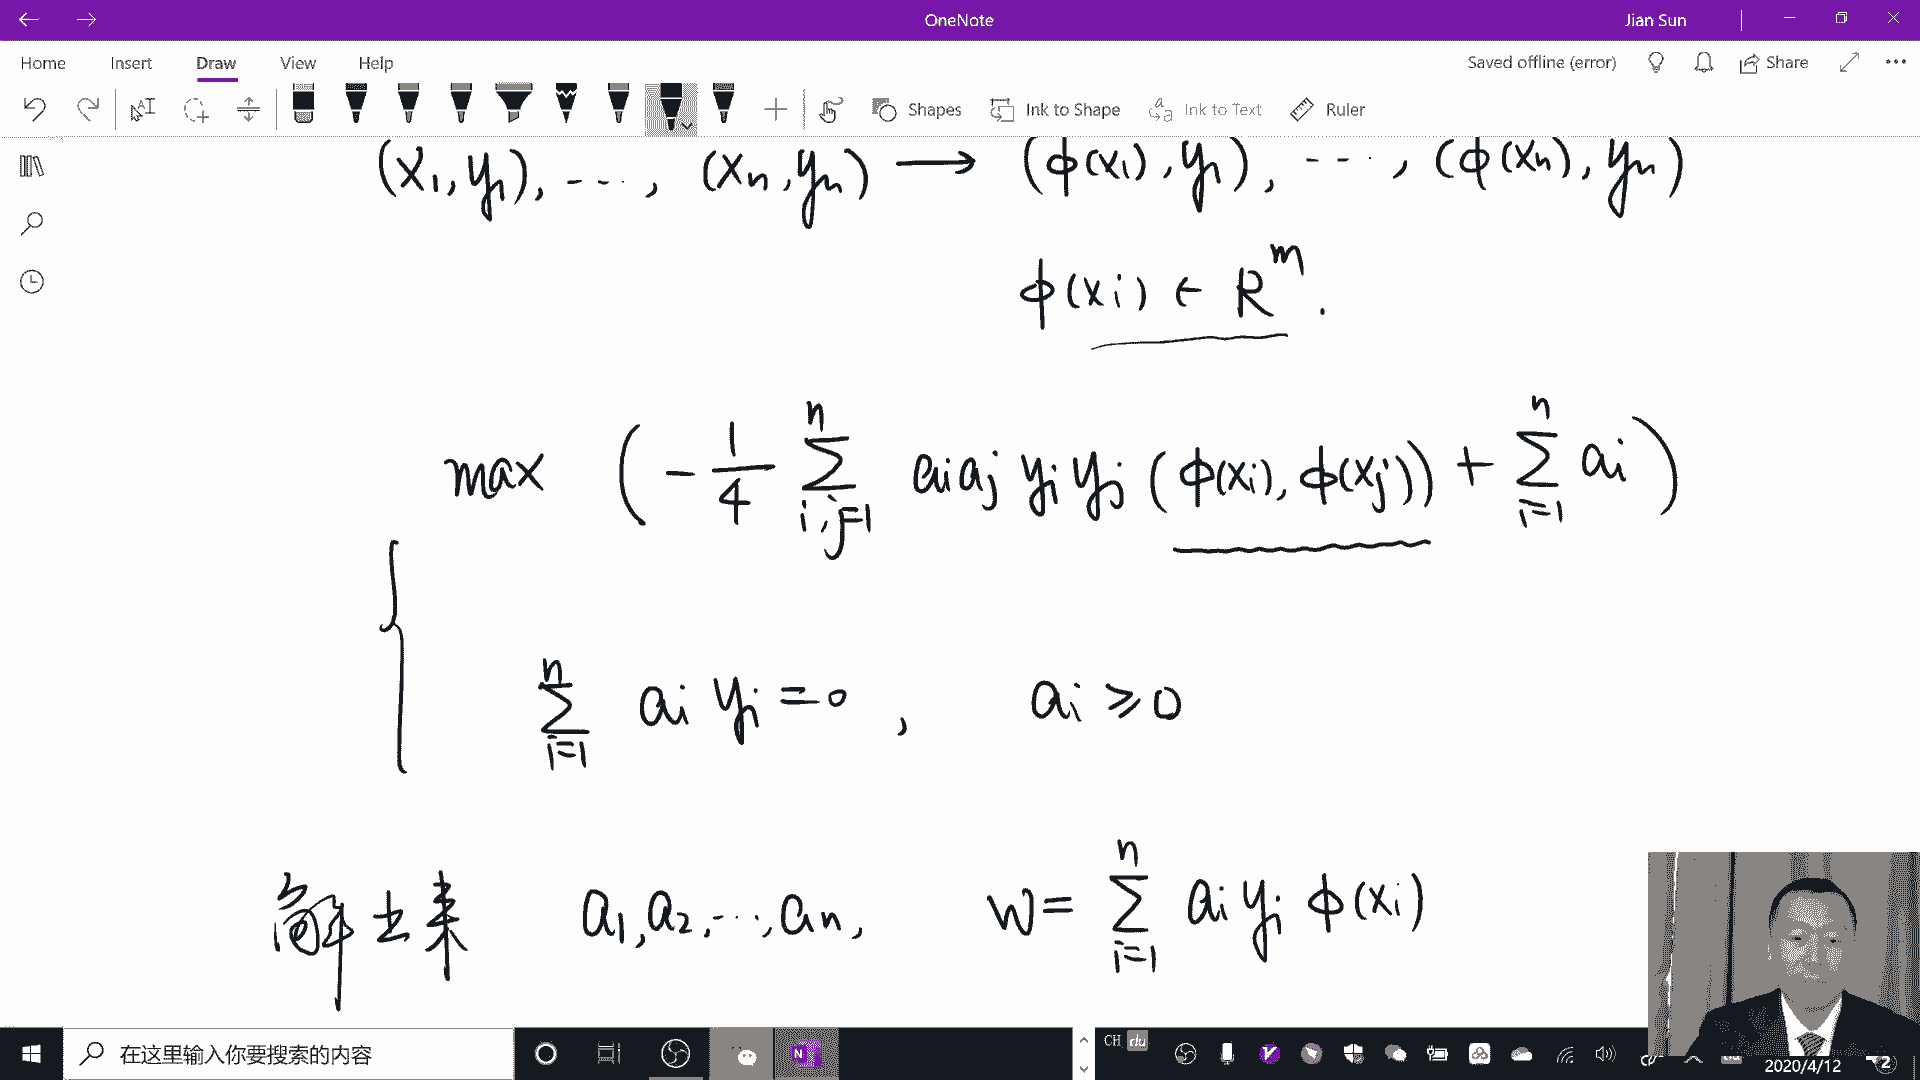 OneNote
Jian Sun
Home Insert Draw View Help
Saved offline (error)
Share
Shapes
Ink to Shape
Ink to Text
Ruler
(x₁, y₁), ---, (xₙ, yₙ) → (ϕ(x₁), y₁), ---, (ϕ(xₙ), yₙ)
ϕ(xᵢ) ∈ Rᵐ.
max ( - 1/4 ∑_{i,j=1}^{n} aᵢ aⱼ yᵢ yⱼ (ϕ(xᵢ), ϕ(xⱼ)) + ∑_{i=1}^{n} aᵢ )
{ ∑_{i=1}^{n} aᵢ yᵢ = 0 , aᵢ ⩾ 0
解出来 a₁, a₂, ---, aₙ, w = ∑_{i=1}^{n} aᵢ yᵢ ϕ(xᵢ)
在这里输入你要搜索的内容
CH
2020/4/12
2